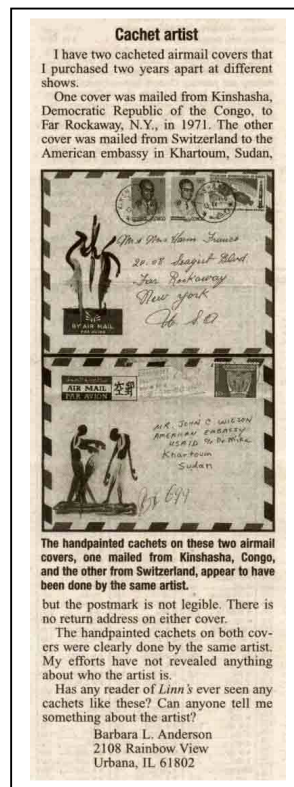 Cachet artist
I have two cacheted airmail covers that
I purchased two years apart at different
shows.
One cover was mailed from Kinshasha,
Democratic Republic of the Congo, to
Far Rockaway, N.Y., in 1971. The other
cover was mailed from Switzerland to the
American embassy in Khartoum, Sudan,
20.08 Seagirt Blvd.
Far Rockaway
New york
U. S A
BY AIR MAIL
PAR AVION
AIR MAIL
PAR AVION
MR. JOHN C WILSON
AMERICAN EMBASSY
Khartoum
Sudan
Box 699
The handpainted cachets on these two airmail
covers, one mailed from Kinshasha, Congo,
and the other from Switzerland, appear to have
been done by the same artist.
but the postmark is not legible. There is
no return address on either cover.
The handpainted cachets on both cov-
ers were clearly done by the same artist.
My efforts have not revealed anything
about who the artist is.
Has any reader of Linn's ever seen any
cachets like these? Can anyone tell me
something about the artist?
Barbara L. Anderson
2108 Rainbow View
Urbana, IL 61802